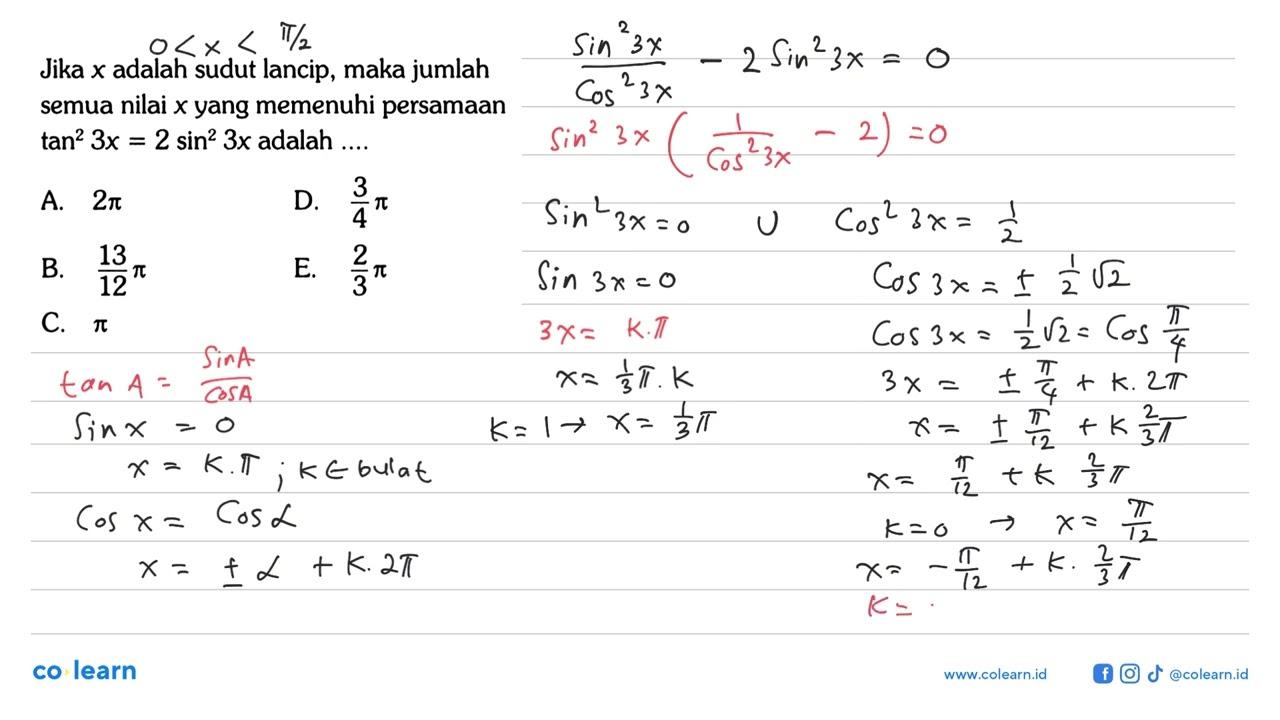 0 < x < π/2
Jika x adalah sudut lancip, maka jumlah
semua nilai x yang memenuhi persamaan
tan² 3x = 2 sin² 3x adalah ....
A. 2π
B. 13/12 π
C. π
D. 3/4 π
E. 2/3 π
tan A = Sin A / Cos A
Sin x = 0
x = K.π ; K ∈ bulat
Cos x = Cos α
x = ± α + K. 2π
Sin² 3x / Cos² 3x - 2 Sin² 3x = 0
Sin² 3x ( 1 / Cos² 3x - 2 ) = 0
Sin² 3x = 0 ∪ Cos² 3x = 1/2
Sin 3x = 0
3x = K.π
x = 1/3 π. K
K = 1 → x = 1/3 π
Cos 3x = ± 1/2 √2
Cos 3x = 1/2 √2 = Cos π/4
3x = ± π/4 + K. 2π
x = ± π/12 + K 2/3 π
x = π/12 + K 2/3 π
K = 0 → x = π/12
x = - π/12 + K. 2/3 π
K = .
co learn
www.colearn.id
@colearn.id